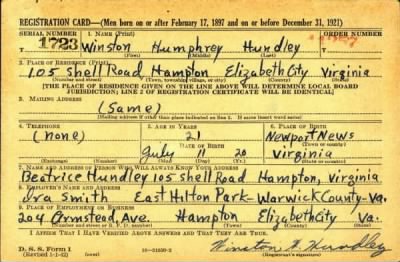 REGISTRATION CARD—(Men born on or after February 17, 1897 and on or before December 31, 1921)
SERIAL NUMBER 1. NAME (Print) ORDER NUMBER
1723 Winston Humphrey Hundley
(First) (Middle) (Last)
2. PLACE OF RESIDENCE (Print)
105 Shell Road Hampton Elizabeth City Virginia
(Number and street) (Town, township, village, or city) (County) (State)
[THE PLACE OF RESIDENCE GIVEN ON THE LINE ABOVE WILL DETERMINE LOCAL BOARD
JURISDICTION; LINE 2 OF REGISTRATION CERTIFICATE WILL BE IDENTICAL]
3. MAILING ADDRESS
(Same)
[Mailing address if other than place indicated on line 2. If same insert word same]
4. TELEPHONE 5. AGE IN YEARS 6. PLACE OF BIRTH
(none) 21 Newport News
DATE OF BIRTH (Town or county)
July 11 20 Virginia
(Exchange) (Number) (Mo.) (Day) (Yr.) (State or country)
7. NAME AND ADDRESS OF PERSON WHO WILL ALWAYS KNOW YOUR ADDRESS
Beatrice Hundley 105 Shell Road Hampton, Virginia
8. EMPLOYER'S NAME AND ADDRESS
Ira Smith East Hilton Park-Warwick County-Va.
9. PLACE OF EMPLOYMENT OR BUSINESS
204 Armstead Ave. Hampton Elizabeth City Va.
(Number and street or R. F. D. number) (Town) (County) (State)
I AFFIRM THAT I HAVE VERIFIED ABOVE ANSWERS AND THAT THEY ARE TRUE.
D. S. S. Form 1
(Revised 1-1-42) (over)
Winston H. Hundley
(Registrant's signature)